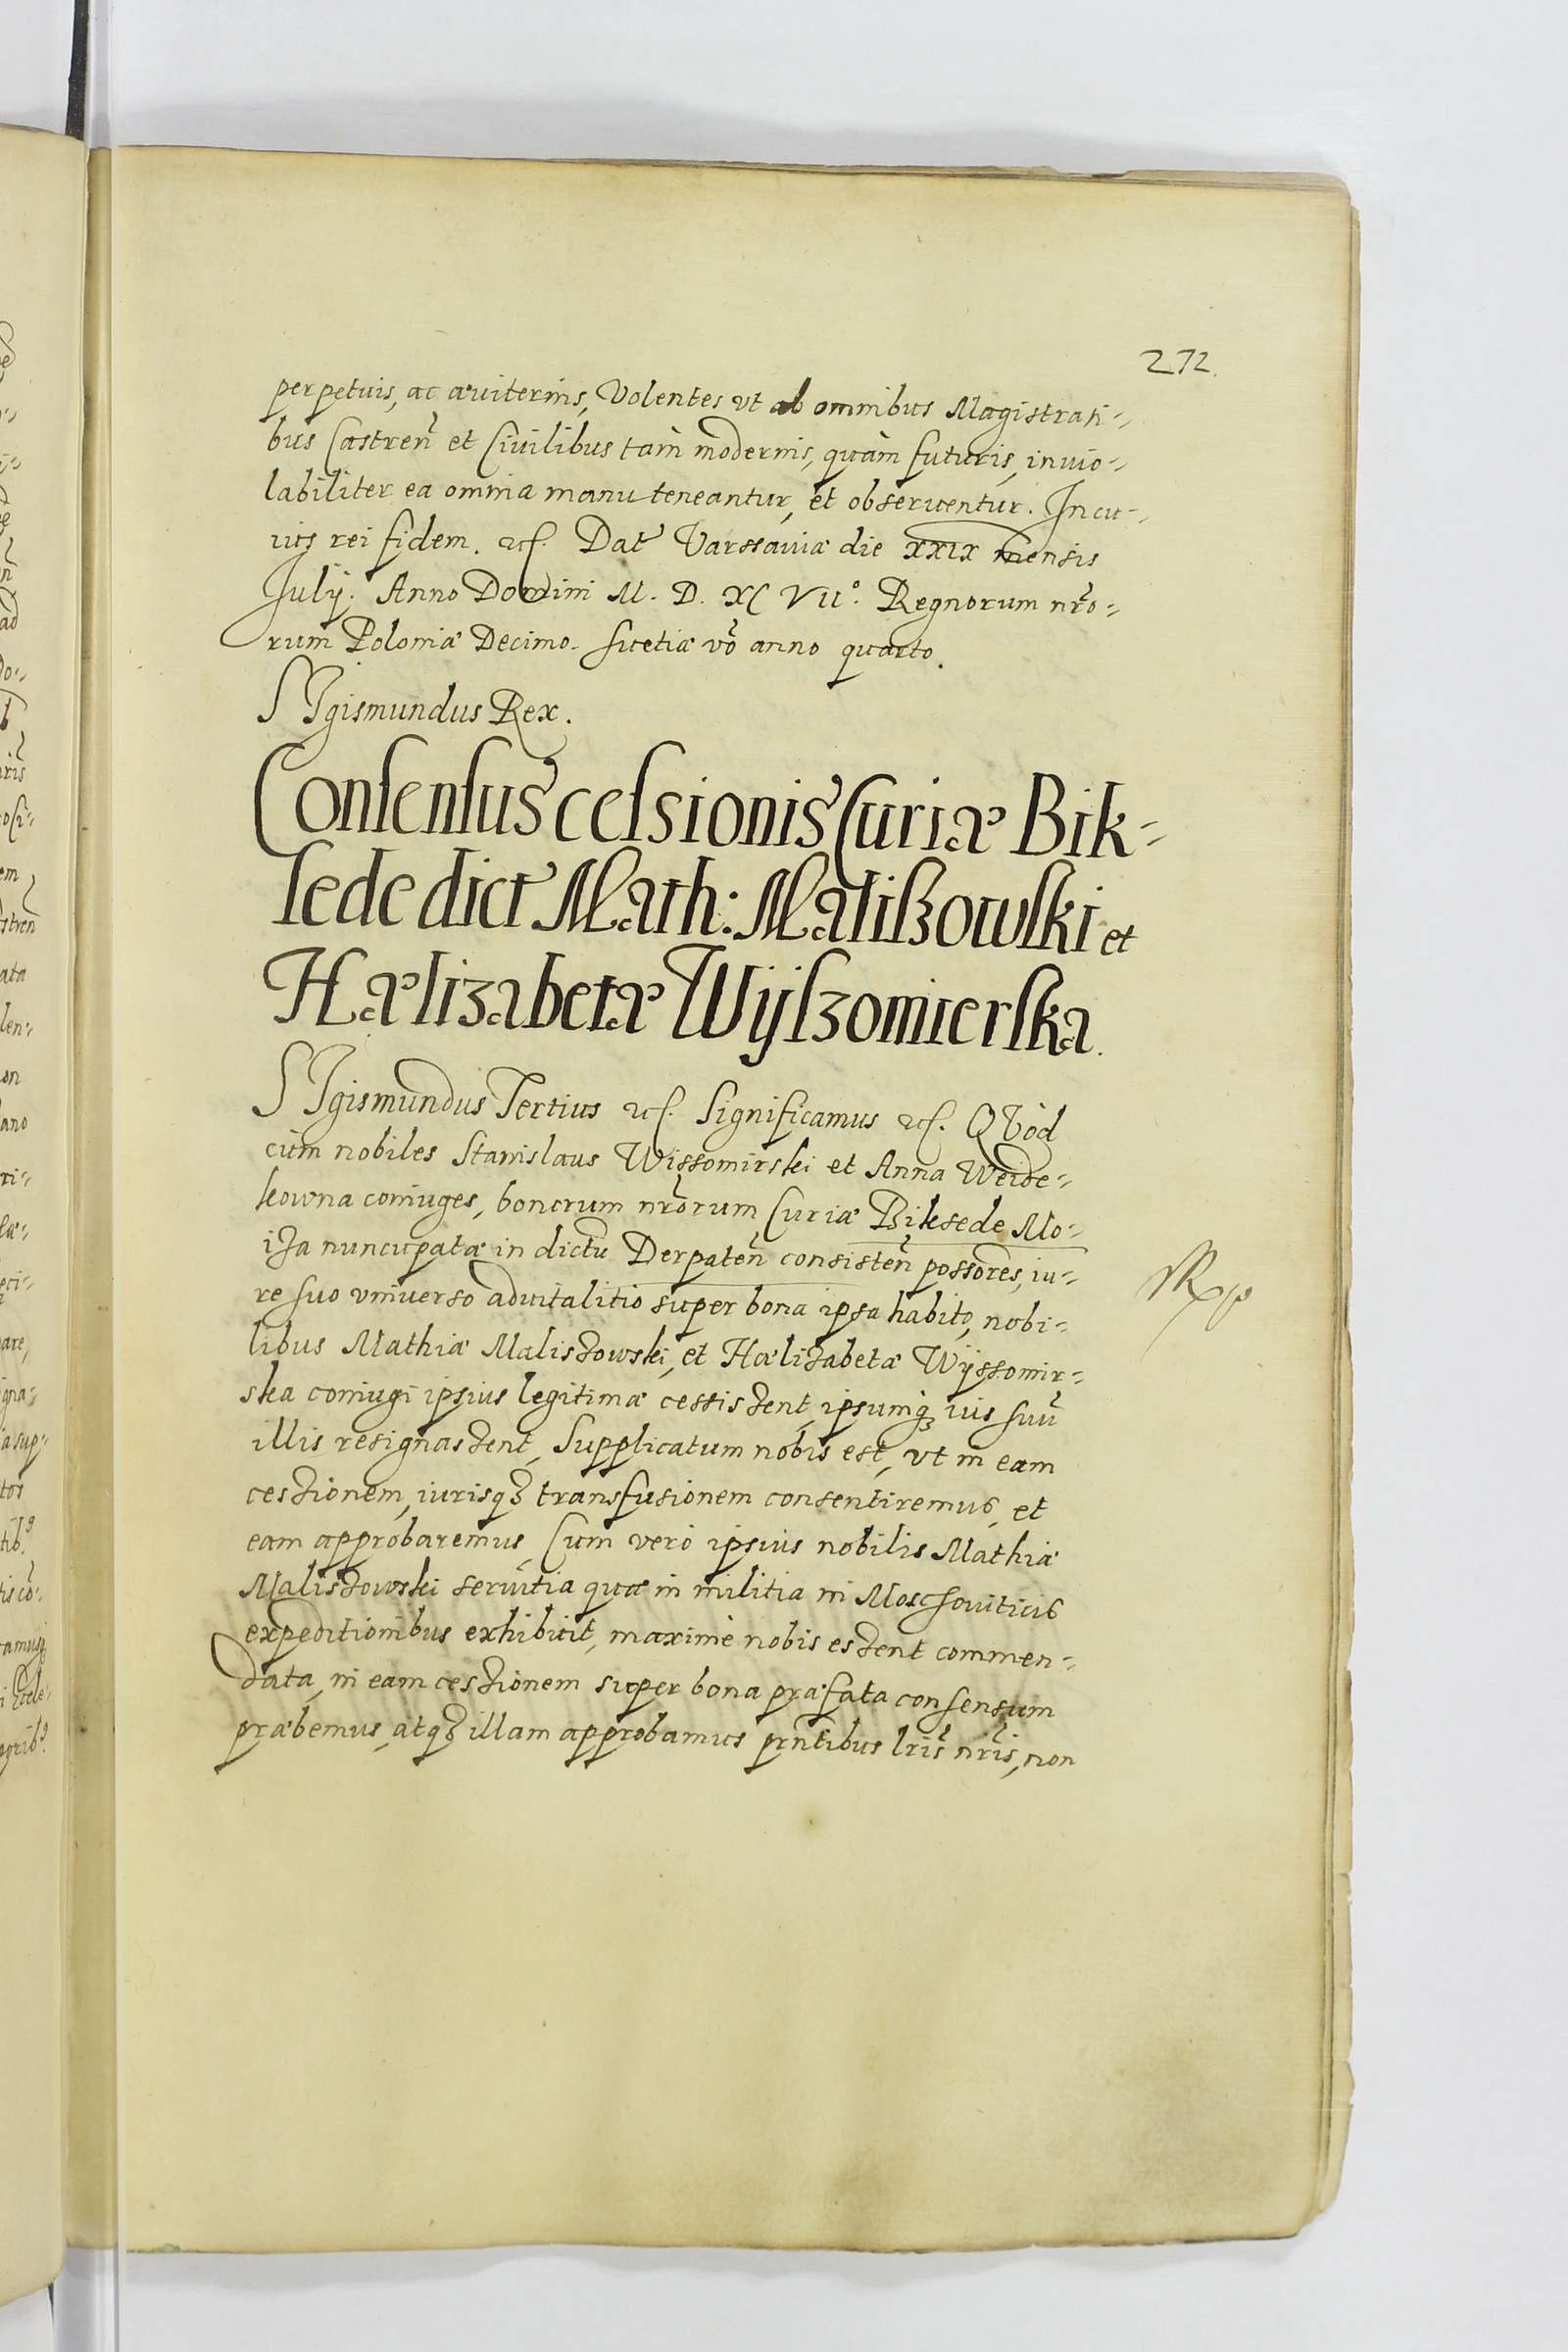 272.
perpetuis, ac æuiternis, Volentes vt ab omnibus Magistrati-
bus Castren̄ et Ciuilibus tam̀ modernis, quàm futuris, inuio-
labiliter ea omnia manu teneantur, et obseruentur. In cu-
ius rei fidem. etc. Dat̄ Varssauiæ die XXIX mensis
Iulij. Anno Domini M. D. XC VII°. Regnorum nr̄o-
rum Poloniæ Decimo. Suetiæ vō anno quarto.
SIgismundus Rex.
Consensus cessionis Curiæ Bik-
sede dict̄ Math: Maliszowski et
Hælizabetæ Wÿszomierska.
SIgismundus Tertius etc. Significamus etc. QVòd
cùm nobiles Stanislaus Wissomirski et Anna Weide-
kowna coniuges, bonorum nr̄orum Curiæ Biksede Mo-
iza nuncupatæ in dictu Derpaten̄ consisten̄ possōres, iu-
re suo vniuerso aduitalitio super bona ipsa habito, nobi-
libus Mathiæ Maliszowski, et Hælizabetæ Wÿssomir-
ska coniugi ipsius legitimæ cessissent, ipsumq; ius suū
illis resignassent, Supplicatum nobis est, vt in eam
cessionem, iurisq; transfusionem consentiremus, et
eam approbaremus, Cum verò ipsius nobilis Mathiæ
Maliszowski seruitia quæ in militia in Moschouiticis
expeditionibus exhibuit, maximè nobis essent commen-
data, in eam cessionem super bona præfata consensum
præbemus, atq; illam approbamus prn̄tibus lr̄is nr̄is, non